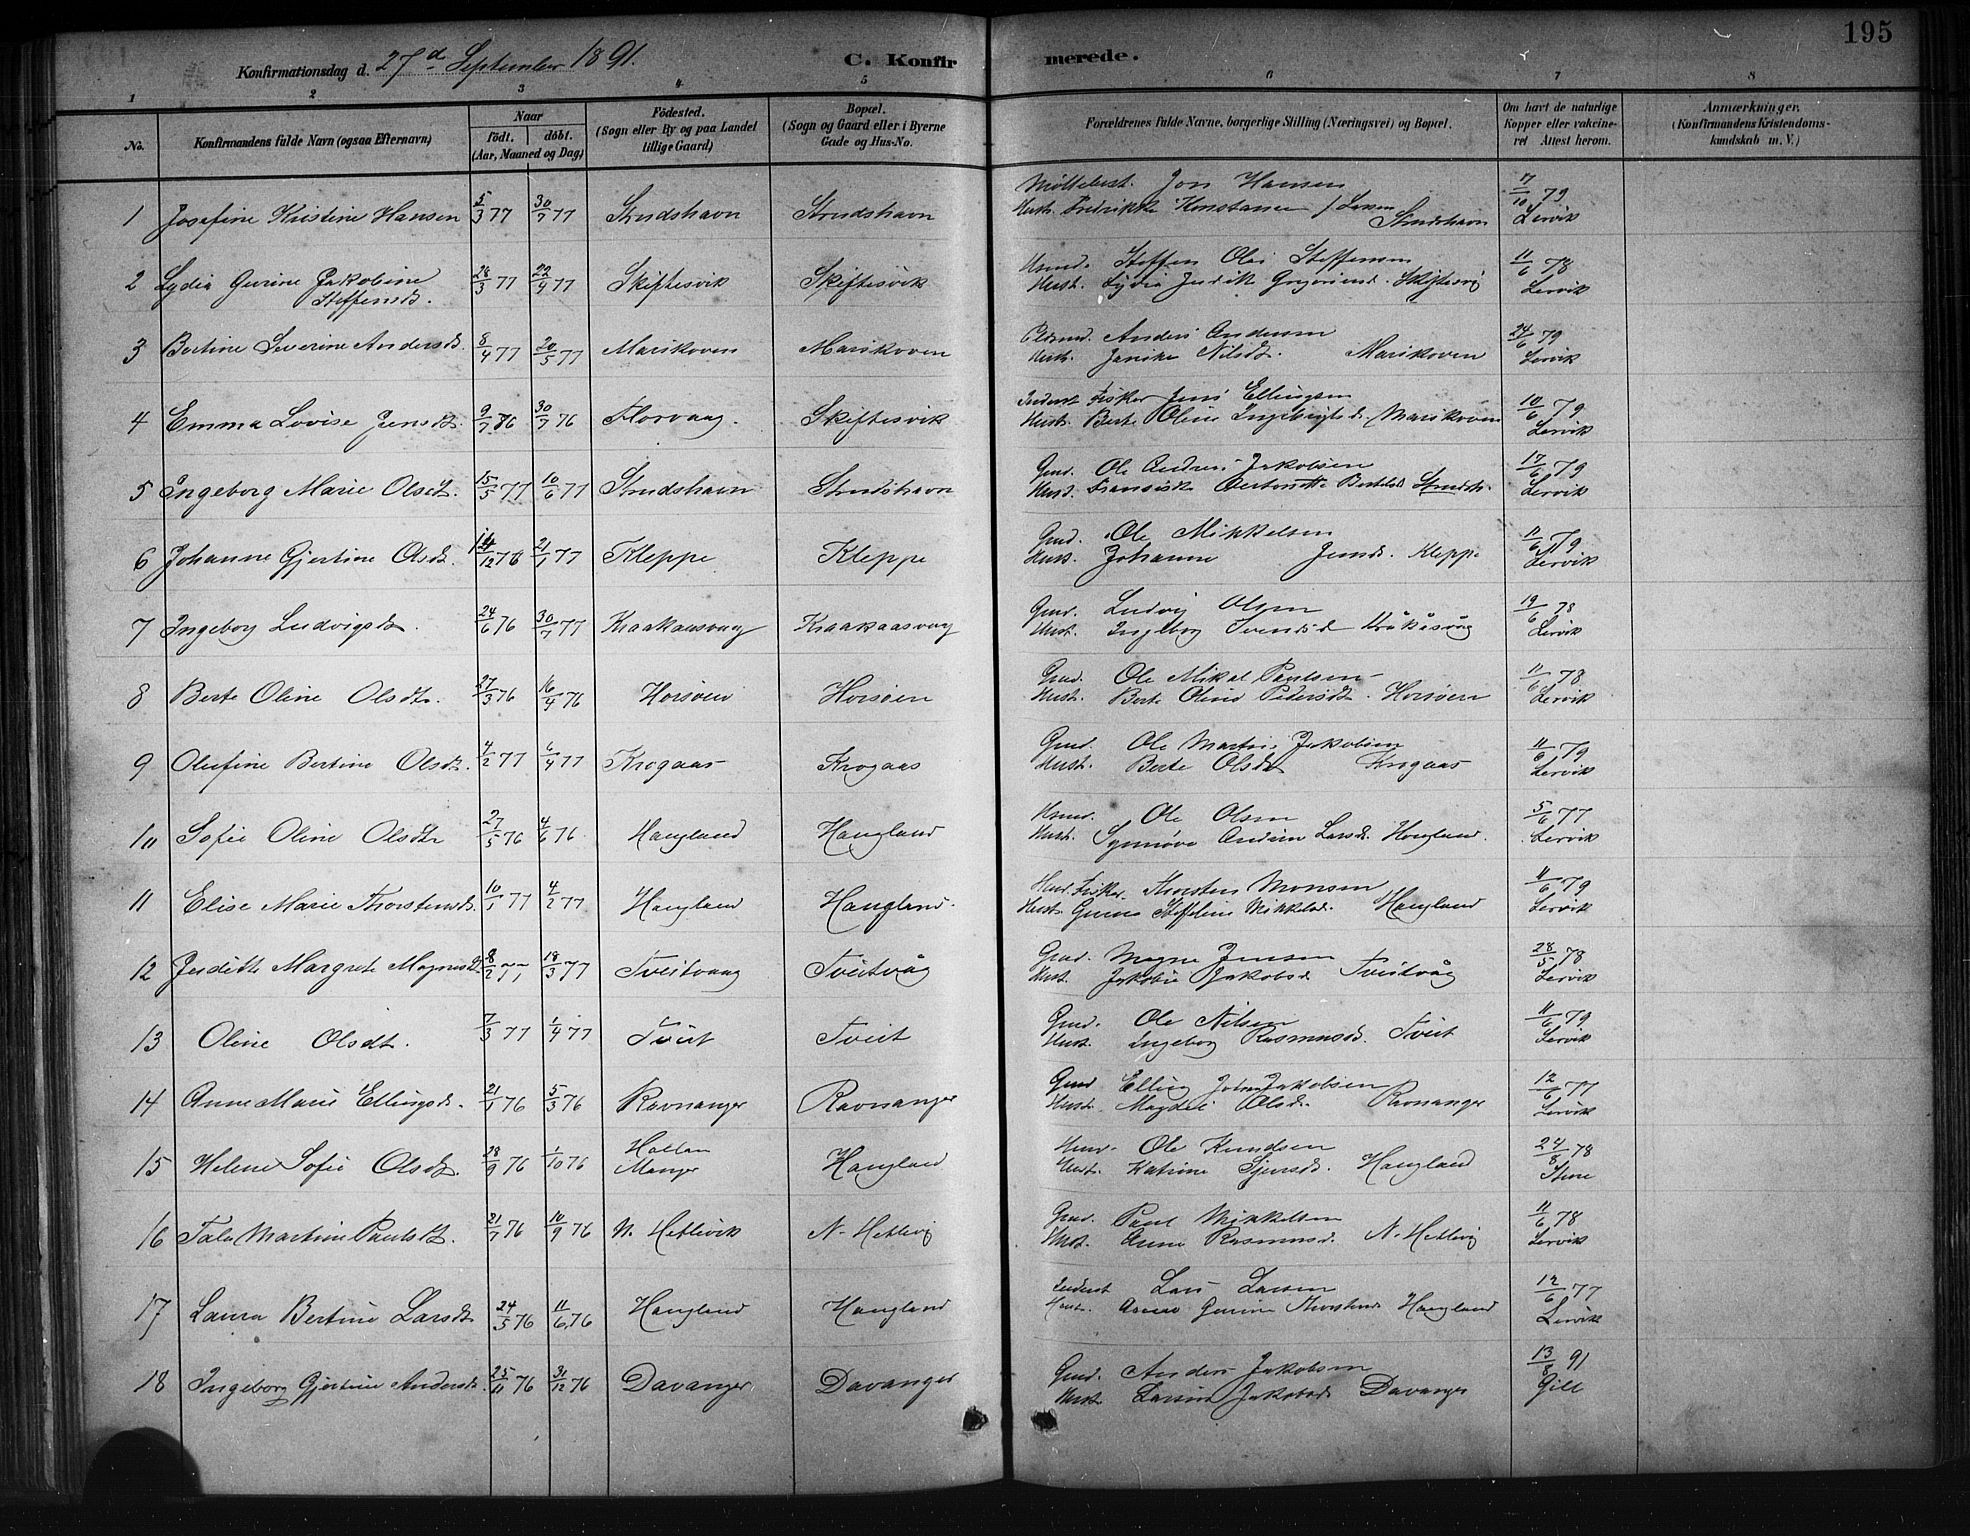 195
Konfirmationsdag d. 27d September 1891.
C. Konfirmerede.
1 2 3 4 5 6 7 8
No.
Konfirmandens fulde Navn (ogsaa Efternavn)
Naar
födt. döbt.
(Aar, Maaned og Dag)
Födested.
(Sogn eller By og paa Landet
tillige Gaard)
Bopæl.
(Sogn og Gaard eller i Byerne
Gade og Hus-No.
Forældrenes fulde Navne, borgerlige Stilling (Næringsvei) og Bopæl.
Om havt de naturlige
Kopper eller vakcine-
ret Attest herom.
Anmærkninger.
(Konfirmandens Kristendoms-
kundskab m. V.)
1 Josefine Kristine Hansen 5/3 77 30/7 77 Strudshavn Strudshavn Jon Hansen
Hust. Fredrikke Konstanse Strudshavn 17/10 79 Lervik
2 Lydia Gurine Jakobine
Steffensd. 28/3 77 22/4 77 Skiftesvik Skiftesvik Steffen Olai Steffensen
Hust. Lydia Judik Gregoriusd. 11/6 78 Lervik
3 Bertine Severine Andersd. 8/4 77 20/5 77 Marikoven Marikoven Anders Andersen
Hust. Janike Nilsdt. Marikoven 24/6 79 Lervik
4 Emma Lovise Jensdt. 9/7 76 30/7 76 Florvaag. Skiftesvik Inderst Fisker Jens Ellingsen
Hust. Berte Oline Ingebrigtsd. Marikoven 10/6 79 Lervik
5 Ingeborg Marie Olsdt. 15/5 77 10/6 77 Strudshavn Strudshavn Gmd. Ole Andreas Jakobsen
Hust. Bertelsd. Strudsh. 17/6 79 Lervik
6 Johanne Gjertine Olsdt. 14/12 76 21/1 77 Kleppe Kleppe Gmd. Ole Mikkelsen
Hust. Johanne Jensd. Kleppe 11/6 79 Lervik
7 Ingeborg Ludvigsdt. 24/6 76 30/7 77 Kraakaasvaag Kraakaasvaag Gmd. Ludvig Olsen
Hust. Ingeborg Svendsd. Kråkåsvåg 19/6 78 Lervik
8 Berte Oline Olsdt. 27/3 76 16/4 76 Horsøen Horsøen Gmd. Ole Mikal Paulsen
Hust. Berte Oline Pedersdt. Horsøen 11/6 78 Lervik
9 Olufine Bertine Olsdt. 4/2 77 6/4 77 Krogaas Krogaas Gmd. Ole Martin Jakobsen
Hust. Berte Olsdt. Krogaas 11/6 79 Lervik
10 Sofie Oline Olsdt. 27/5 76 4/6 76 Haugland Haugland Ole Olsen
Hust. Synnøve Andrine Larsd. Haugland. 5/6 77 Lervik
11 Elise Marie Thorstensd. 10/1 77 4/2 77 Haugland Haugland. Fisker Thorsten Monsen
Hust. Steffeline Mikkelsd. Haugland 11/6 79 Lervik
12 Judithe Margrete Magnesdt. 8/2 77 18/3 77 Tveitvaag Tveitvåg Gmd. Magne Jensen
Hust. Jakobie Jakobsd. Tveitvåg 28/5 78 Lervik
13 Oline Olsdt. 7/3 77 1/4 77 Tveit Tveit Gmd. Ole Nilsen
Hust. Ingeborg Rasmusd. Tveit 11/6 79 Lervik
14 Anne Marie Ellingsd. 21/1 76 5/3 76 Ravnanger Ravnanger Gmd. Elling Johan Jakobsen
Hust. Magdeli Olsd. Ravnanger 12/6 77 Lervik
15 Helene Sofie Olsdt. 28/9 76 1/10 76 Manger Haugland Ole Knudsen
Hust. Katrine Haugland 24/8 78
16 Tale Martine Paulsdt. 21/7 76 10/9 76 N. Hetlevik N. Hetlevig Gmd. Paul Mikkelsen
Hust. Anne Rasmusd. N. Hetlevig 11/6 78 Lervik
17 Laura Bertine Larsdt. 24/5 76 11/6 76 Haugland Haugland Inderst Lars Larsen
Hust. Gurine Thorstensd. Haugland 12/6 77 Lervik
18 Ingeborg Gjertine Andersd. 25/11 76 31/12 76 Davanger Davanger Gmd. Anders Jakobsen
Hust. Larsine Jakobsd. Davanger 13/8 91 Gill